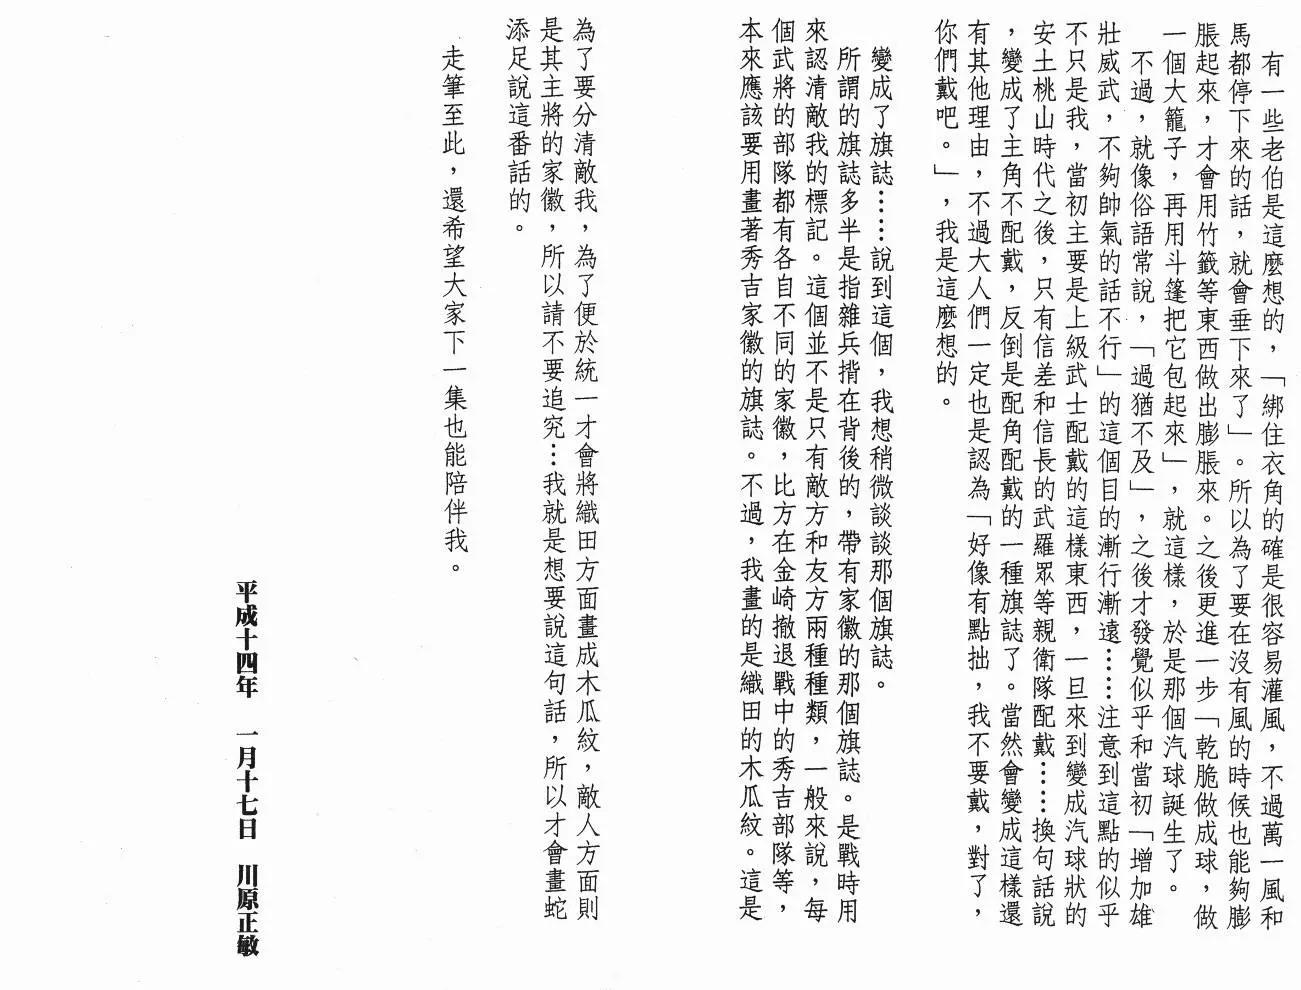 有一些老伯是這麼想的，「綁住衣角的確是很容易灌風，不過萬一風和
馬都停下來的話，就會垂下來了」。所以為了要在沒有風的時候也能夠膨
脹起來，才會用竹籤等東西做出膨脹來。之後更進一步「乾脆做成球，做
一個大籠子，再用斗篷把它包起來」，就這樣，於是那個汽球誕生了。
不過，就像俗語常說，「過猶不及」，之後才發覺似乎和當初「增加雄
壯威武，不夠帥氣的話不行」的這個目的漸行漸遠……注意到這點的似乎
不只是我，當初主要是上級武士配戴的這樣東西，一旦來到變成汽球狀的
安土桃山時代之後，只有信差和信長的武羅眾等親衛隊配戴……換句話說
，變成了主角不配戴，反倒是配角配戴的一種旗誌了。當然會變成這樣還
有其他理由，不過大人們一定也是認為「好像有點拙，我不要戴，對了，
你們戴吧。」，我是這麼想的。
變成了旗誌……說到這個，我想稍微談談那個旗誌。
所謂的旗誌多半是指雜兵揹在背後的，帶有家徽的那個旗誌。是戰時用
來認清敵我的標記。這個並不是只有敵方和友方兩種種類，一般來說，每
個武將的部隊都有各自不同的家徽，比方在金崎撤退戰中的秀吉部隊等，
本來應該要用畫著秀吉家徽的旗誌。不過，我畫的是織田的木瓜紋。這是
為了要分清敵我，為了便於統一才會將織田方面畫成木瓜紋，敵人方面則
是其主將的家徽，所以請不要追究…我就是想要說這句話，所以才會畫蛇
添足說這番話的。
走筆至此，還希望大家下一集也能陪伴我。
平成十四年　一月十七日　川原正敏